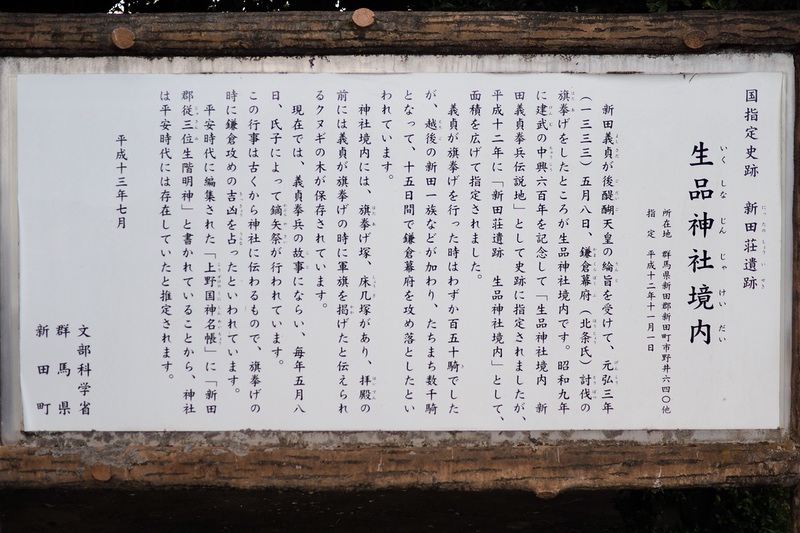 国指定史跡　新田荘遺跡
生品神社境内
所在地　群馬県新田郡新田町市野井六四〇他
指定　平成十二年十一月一日
新田義貞が後醍醐天皇の綸旨を受けて、元弘三年
（一三三三）五月八日、鎌倉幕府（北条氏）討伐の
旗挙げをしたところが生品神社境内です。昭和九年
に建武の中興六百年を記念して「生品神社境内　新
田義貞挙兵伝説地」として史跡に指定されましたが、
平成十二年に「新田荘遺跡　生品神社境内」として、
面積を広げて指定されました。
義貞が旗挙げを行った時はわずか百五十騎でした
が、越後の新田一族などが加わり、たちまち数千騎
となって、十五日間で鎌倉幕府を攻め落としたとい
われています。
神社境内には、旗挙げ塚、床几塚があり、拝殿の
前には義貞が旗挙げの時に軍旗を掲げたと伝えられ
るクヌギの木が保存されています。
現在では、義貞挙兵の故事にならい、毎年五月八
日、氏子によって鏑矢祭が行われています。
この行事は古くから神社に伝わるもので、旗挙げの
時に鎌倉攻めの吉凶を占ったといわれています。
平安時代に編集された「上野国神名帳」に「新田
郡従三位生階明神」と書かれていることから、神社
は平安時代には存在していたと推定されます。
平成十三年七月
文部科学省
群馬県
新田町